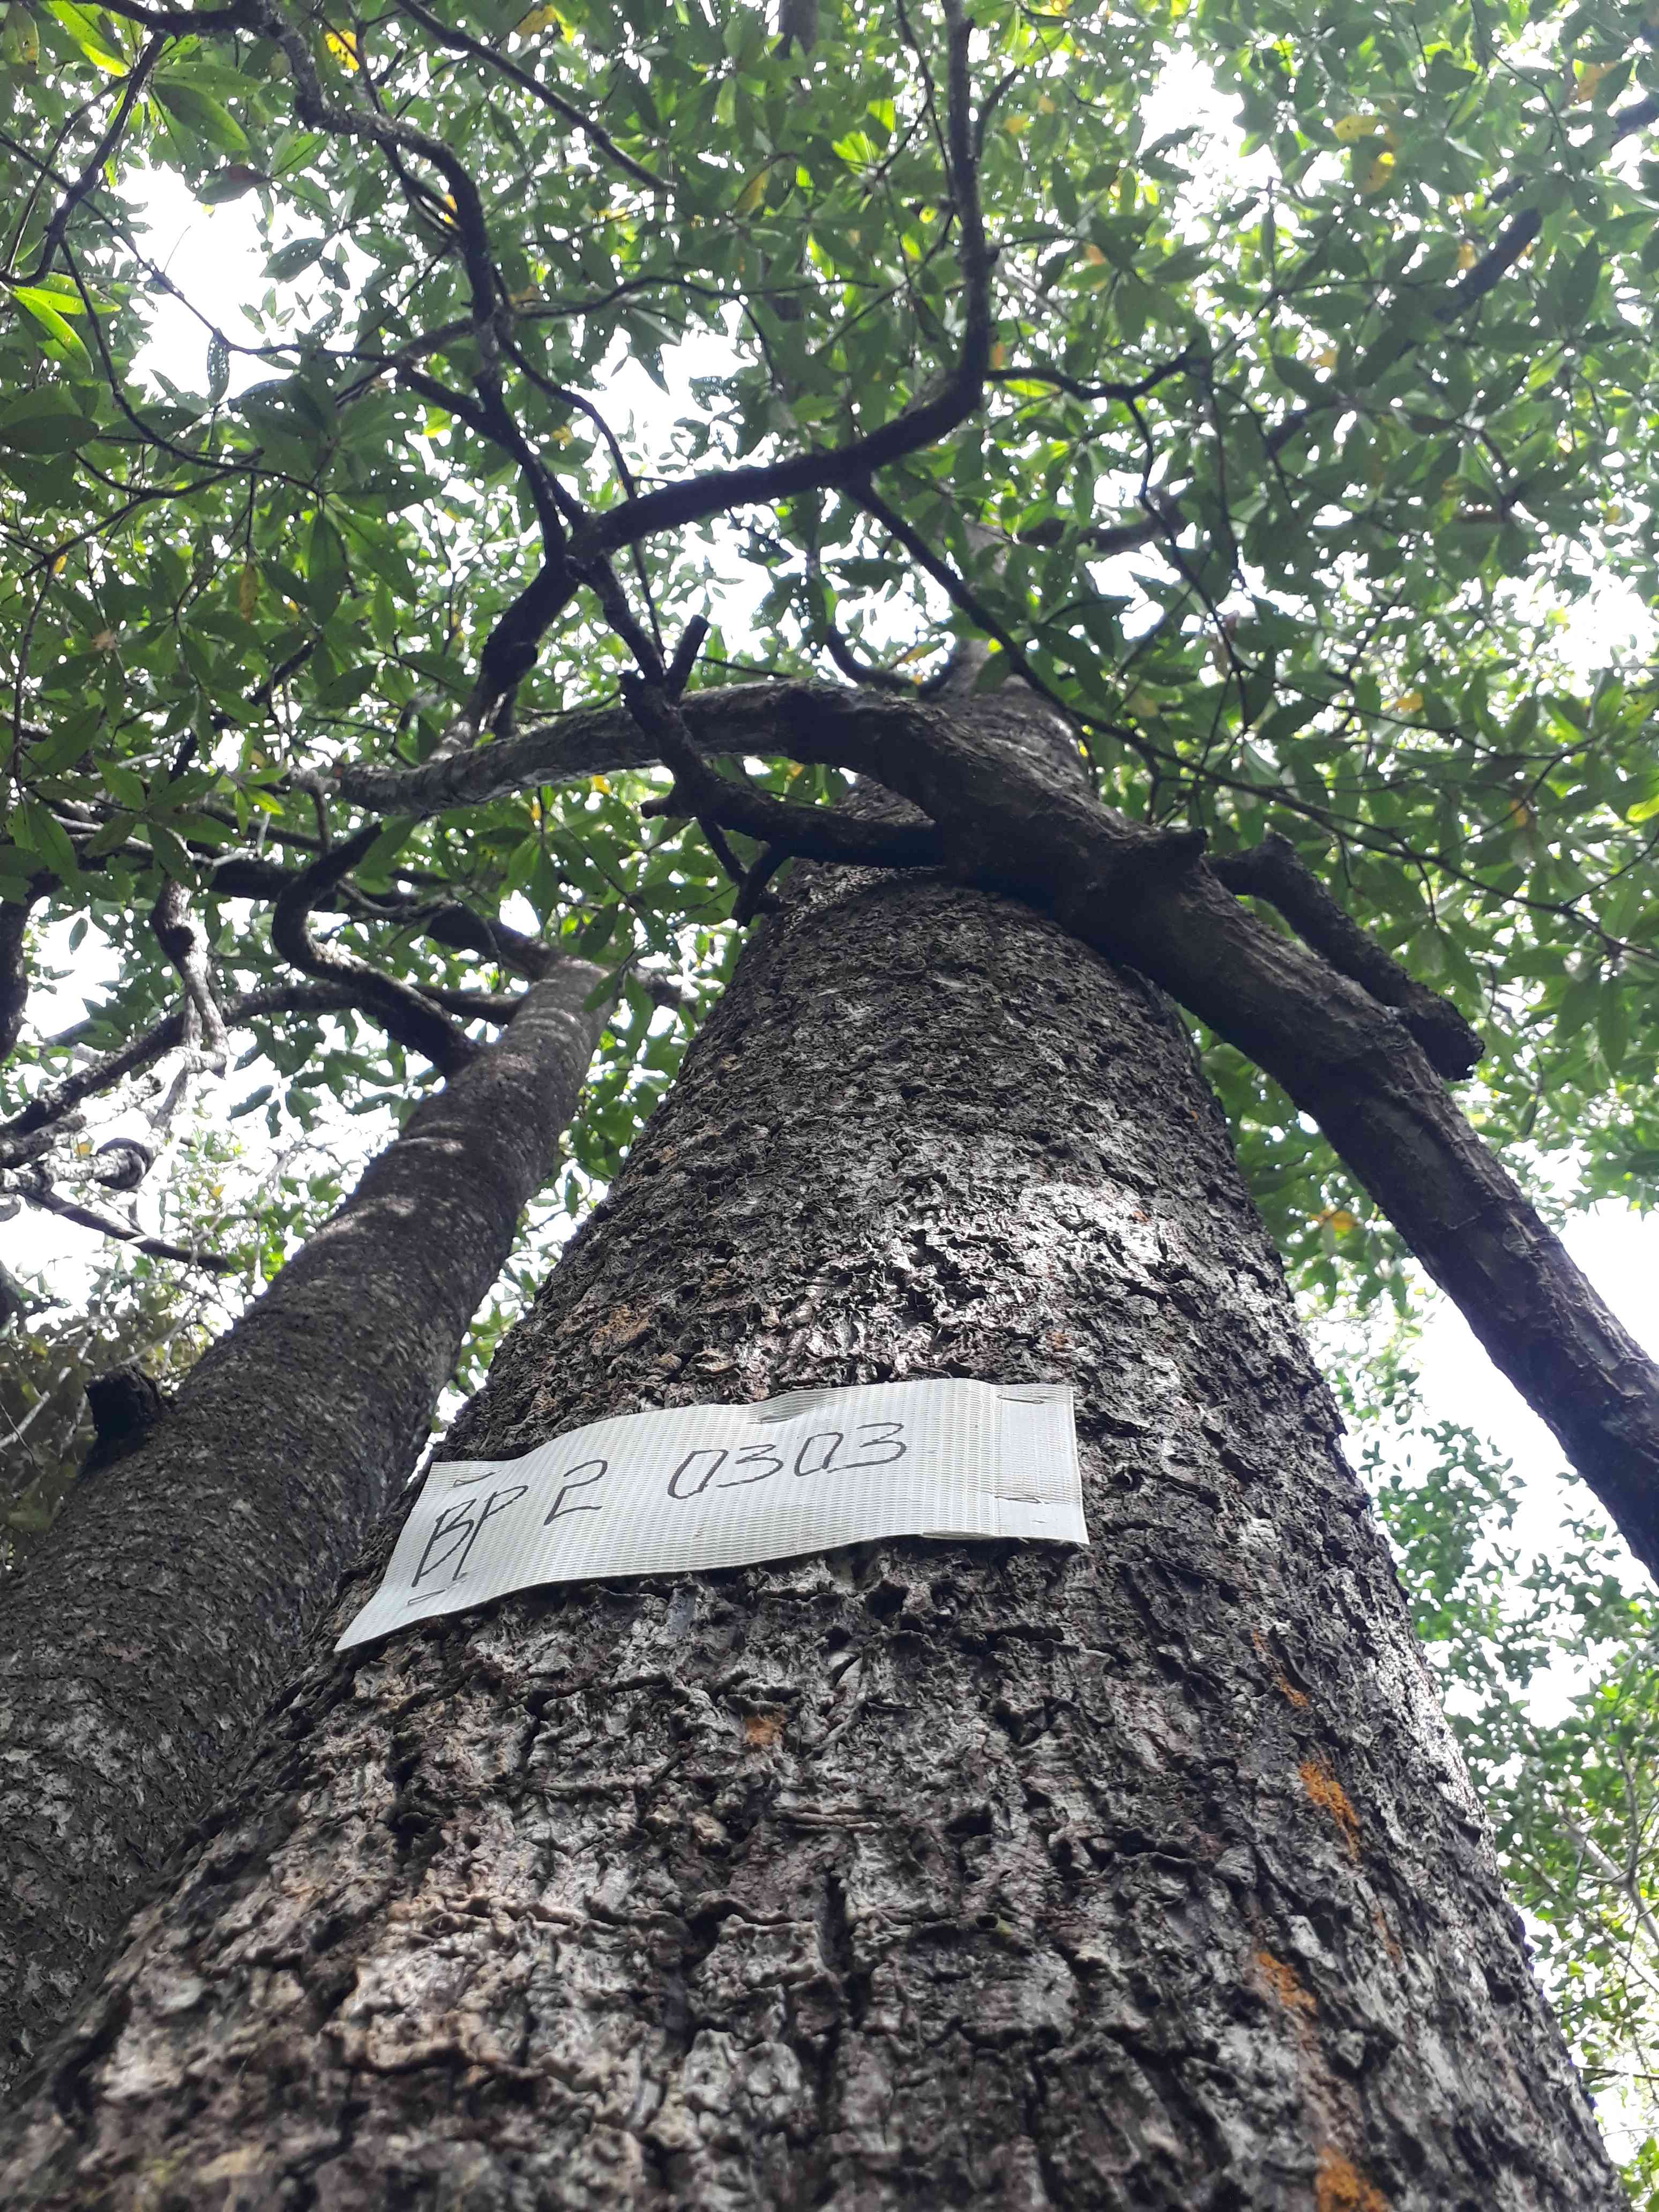 BP 2 0303